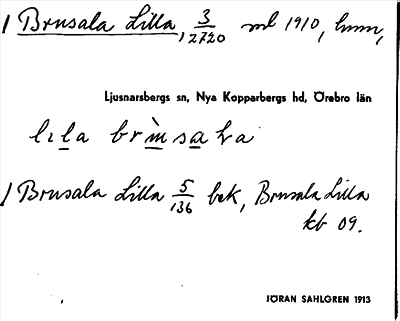 / Brusala Lilla, 3/2720 ml 1910, hmm,
Ljusnarsbergs sn, Nya Kopparbergs hd, Örebro län
lıla brùsala
/ Brusala Lilla 5/136 bek, Brusala Lilla
kb 09.
JÖRAN SAHLGREN 1913